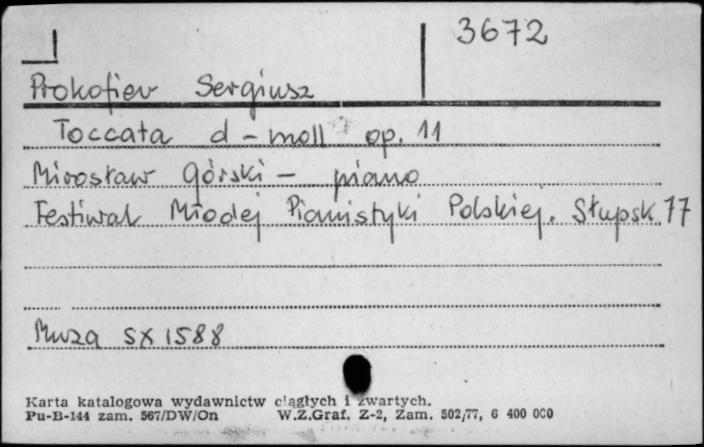 3672
Prokofiew Sergiusz
Toccata d-moll op. 11
Mirosław Górski - piano
Festiwal Młodej Pianistyki Polskiej. Słupsk 77
Muza SX 1588
Karta katalogowa wydawnictw ciągłych i zwartych.
Pu-B-144 zam. 567/DW/On W.Z.Graf. Z-2, Zam. 502/77, 6 400 000